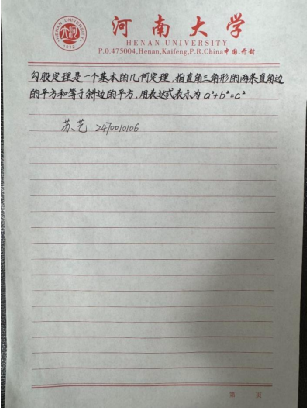 河南大学
HENAN UNIVERSITY
P.O.475004,Henan,Kaifeng,P.R.China 中国·开封
勾股定理是一个基本的几何定理,指直角三角形的两条直角边
的平方和等于斜边的平方,用表达式表示为 a²+b²=c²
苏艺 2470010106
第 页